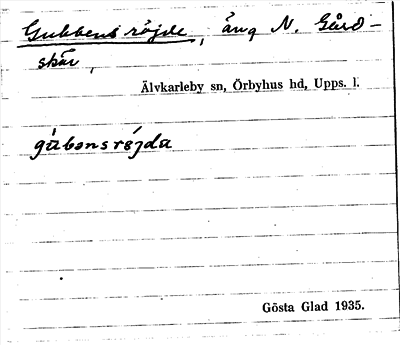 Gubbens röjde, äng N. Gård-
skär,
Älvkarleby sn, Örbyhus hd, Upps. l.
gùbensrö́jda
Gösta Glad 1935.